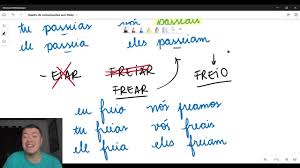 tu passeias vós passeais
ele passeia eles passeiam
- EIAR FREIAR FREIO
FREAR
eu freio nós freamos
tu freias vós freais
ele freia eles freiam